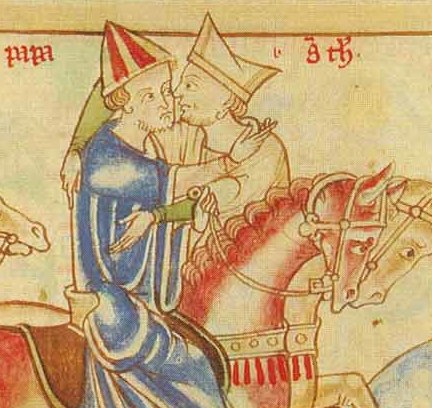 papa b s̄ th̄.